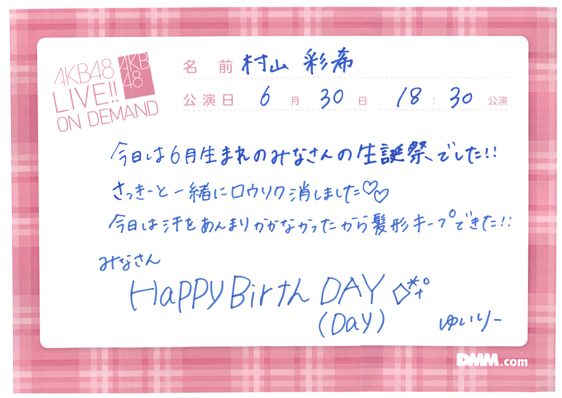 AKB48
LIVE!!
ON DEMAND
AKB
48
名 前 村山 彩希
公演日 6 月 30 日 18 : 30 公演
今日は6月生まれのみなさんの生誕祭、でした!!
さっきーと一緒にロウソク消しました♡♡
今日は汗をあんまりかかなかったから髪形キープできた!!
みなさん
HaPPY BirthDAY
(Day)
ゆいりー
DMM.com